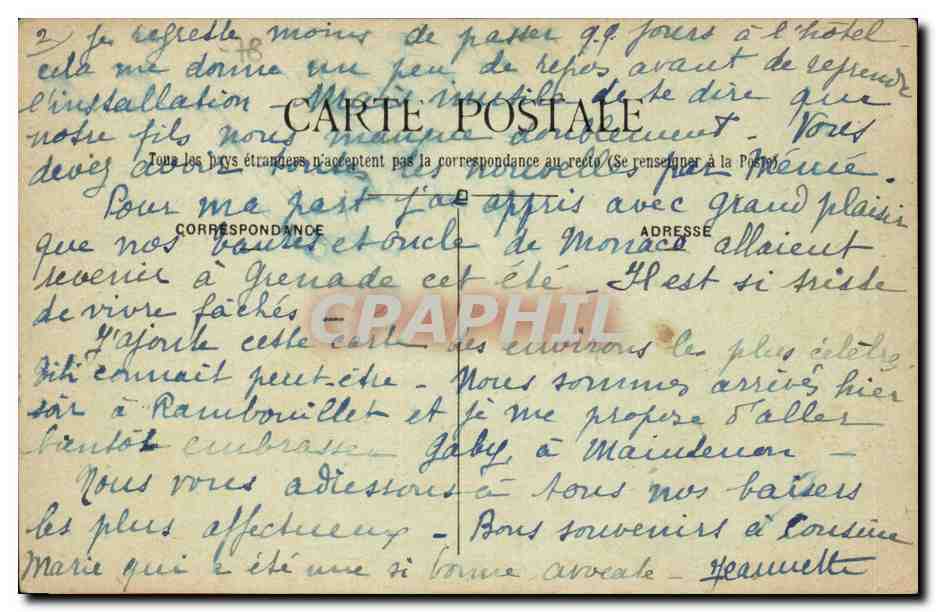 2) Je regrette moins de passer q.q. jours à l'hôtel -
78
cela me donne un peu de repos avant de reprendre
l'installation - Mais inutile de te dire que
CARTE POSTALE
notre fils nous manque doublement. Vous
Tous les pays étrangers n'acceptent pas la correspondance au recto (Se renseigner à la Poste)
devez avoir toutes les nouvelles par Mémé.
Pour ma part j'ai appris avec grand plaisir
CORRESPONDANCE
ADRESSE
que nos tantes et oncle de Monaco allaient
revenir à Grenade cet été - Il est si triste
de vivre fâchés -
CPAPHIL
J'ajoute cette carte des environs les plus célèbres
Titi connait peut-être - Nous sommes arrivés hier
soir à Rambouillet et je me propose d'aller
bientôt embrasser Gaby, à Maintenon -
Nous vous adressons à tous nos baisers
les plus affectueux - Bons souvenirs à Cousine
Marie qui a été une si bonne avocate - Jeannette